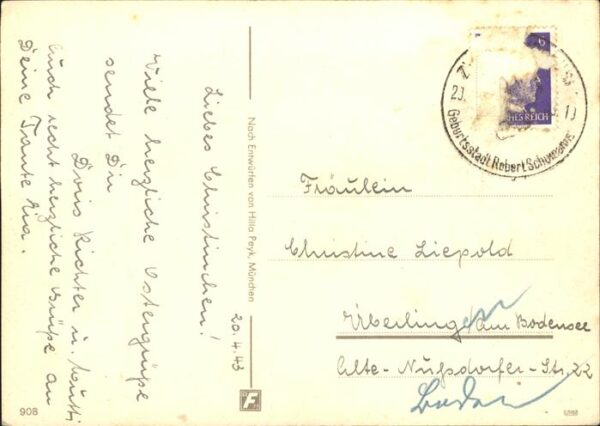 Liebes Christinchen!
Viele herzliche Ostergrüße
sendet Dir
Doris Richter u. Mutti
Auch recht herzliche Grüße an
Deine Tante Eva.
20.4.43
Nach Entwürfen von Hilla Peyk, München
F
908
6
HES REICH
Geburtsstadt Robert Schumanns
Fräulein
Christine Liepold
Überlingen/am Bodensee
Alte-Nußdorfer-Str. 22
Baden